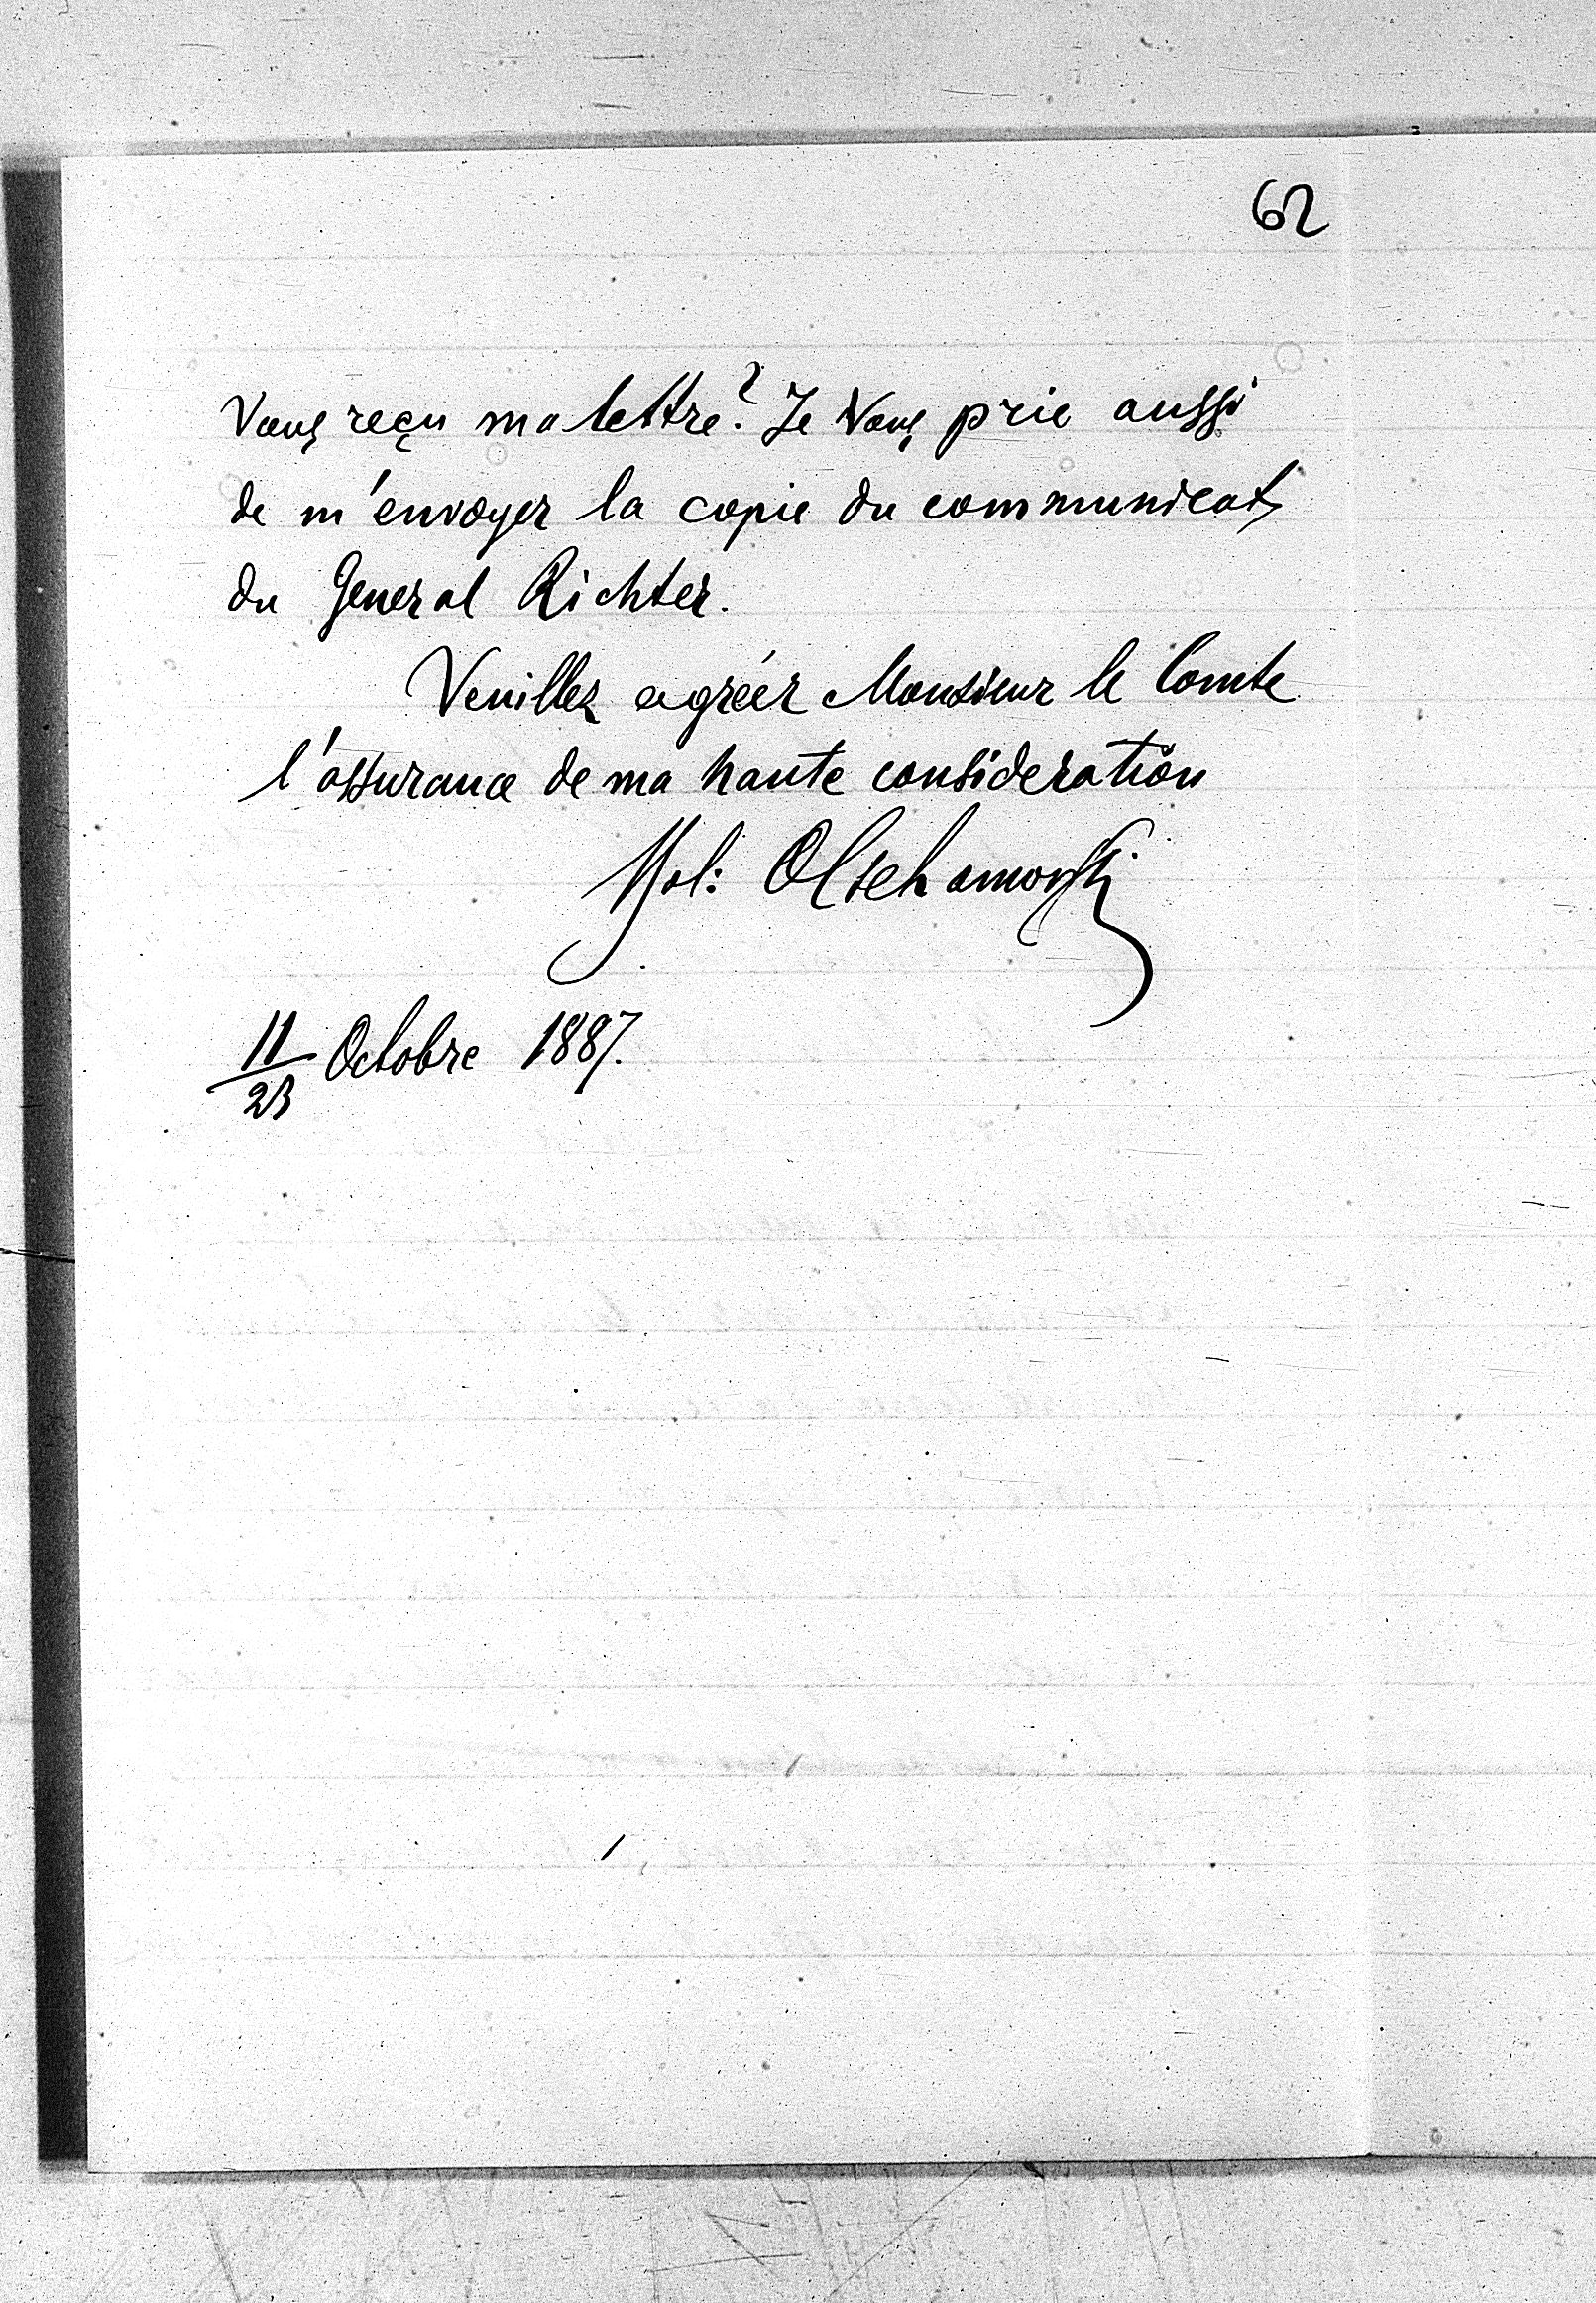 62
Vous reçu ma lettre? Je Vous prie aussi
de m'envoyer la copie du communicat
du General Richter.
Veuillez agréer Monsieur le Comte
l'assurance de ma haute consideration
Olschamowski
11/23 Octobre 1887.